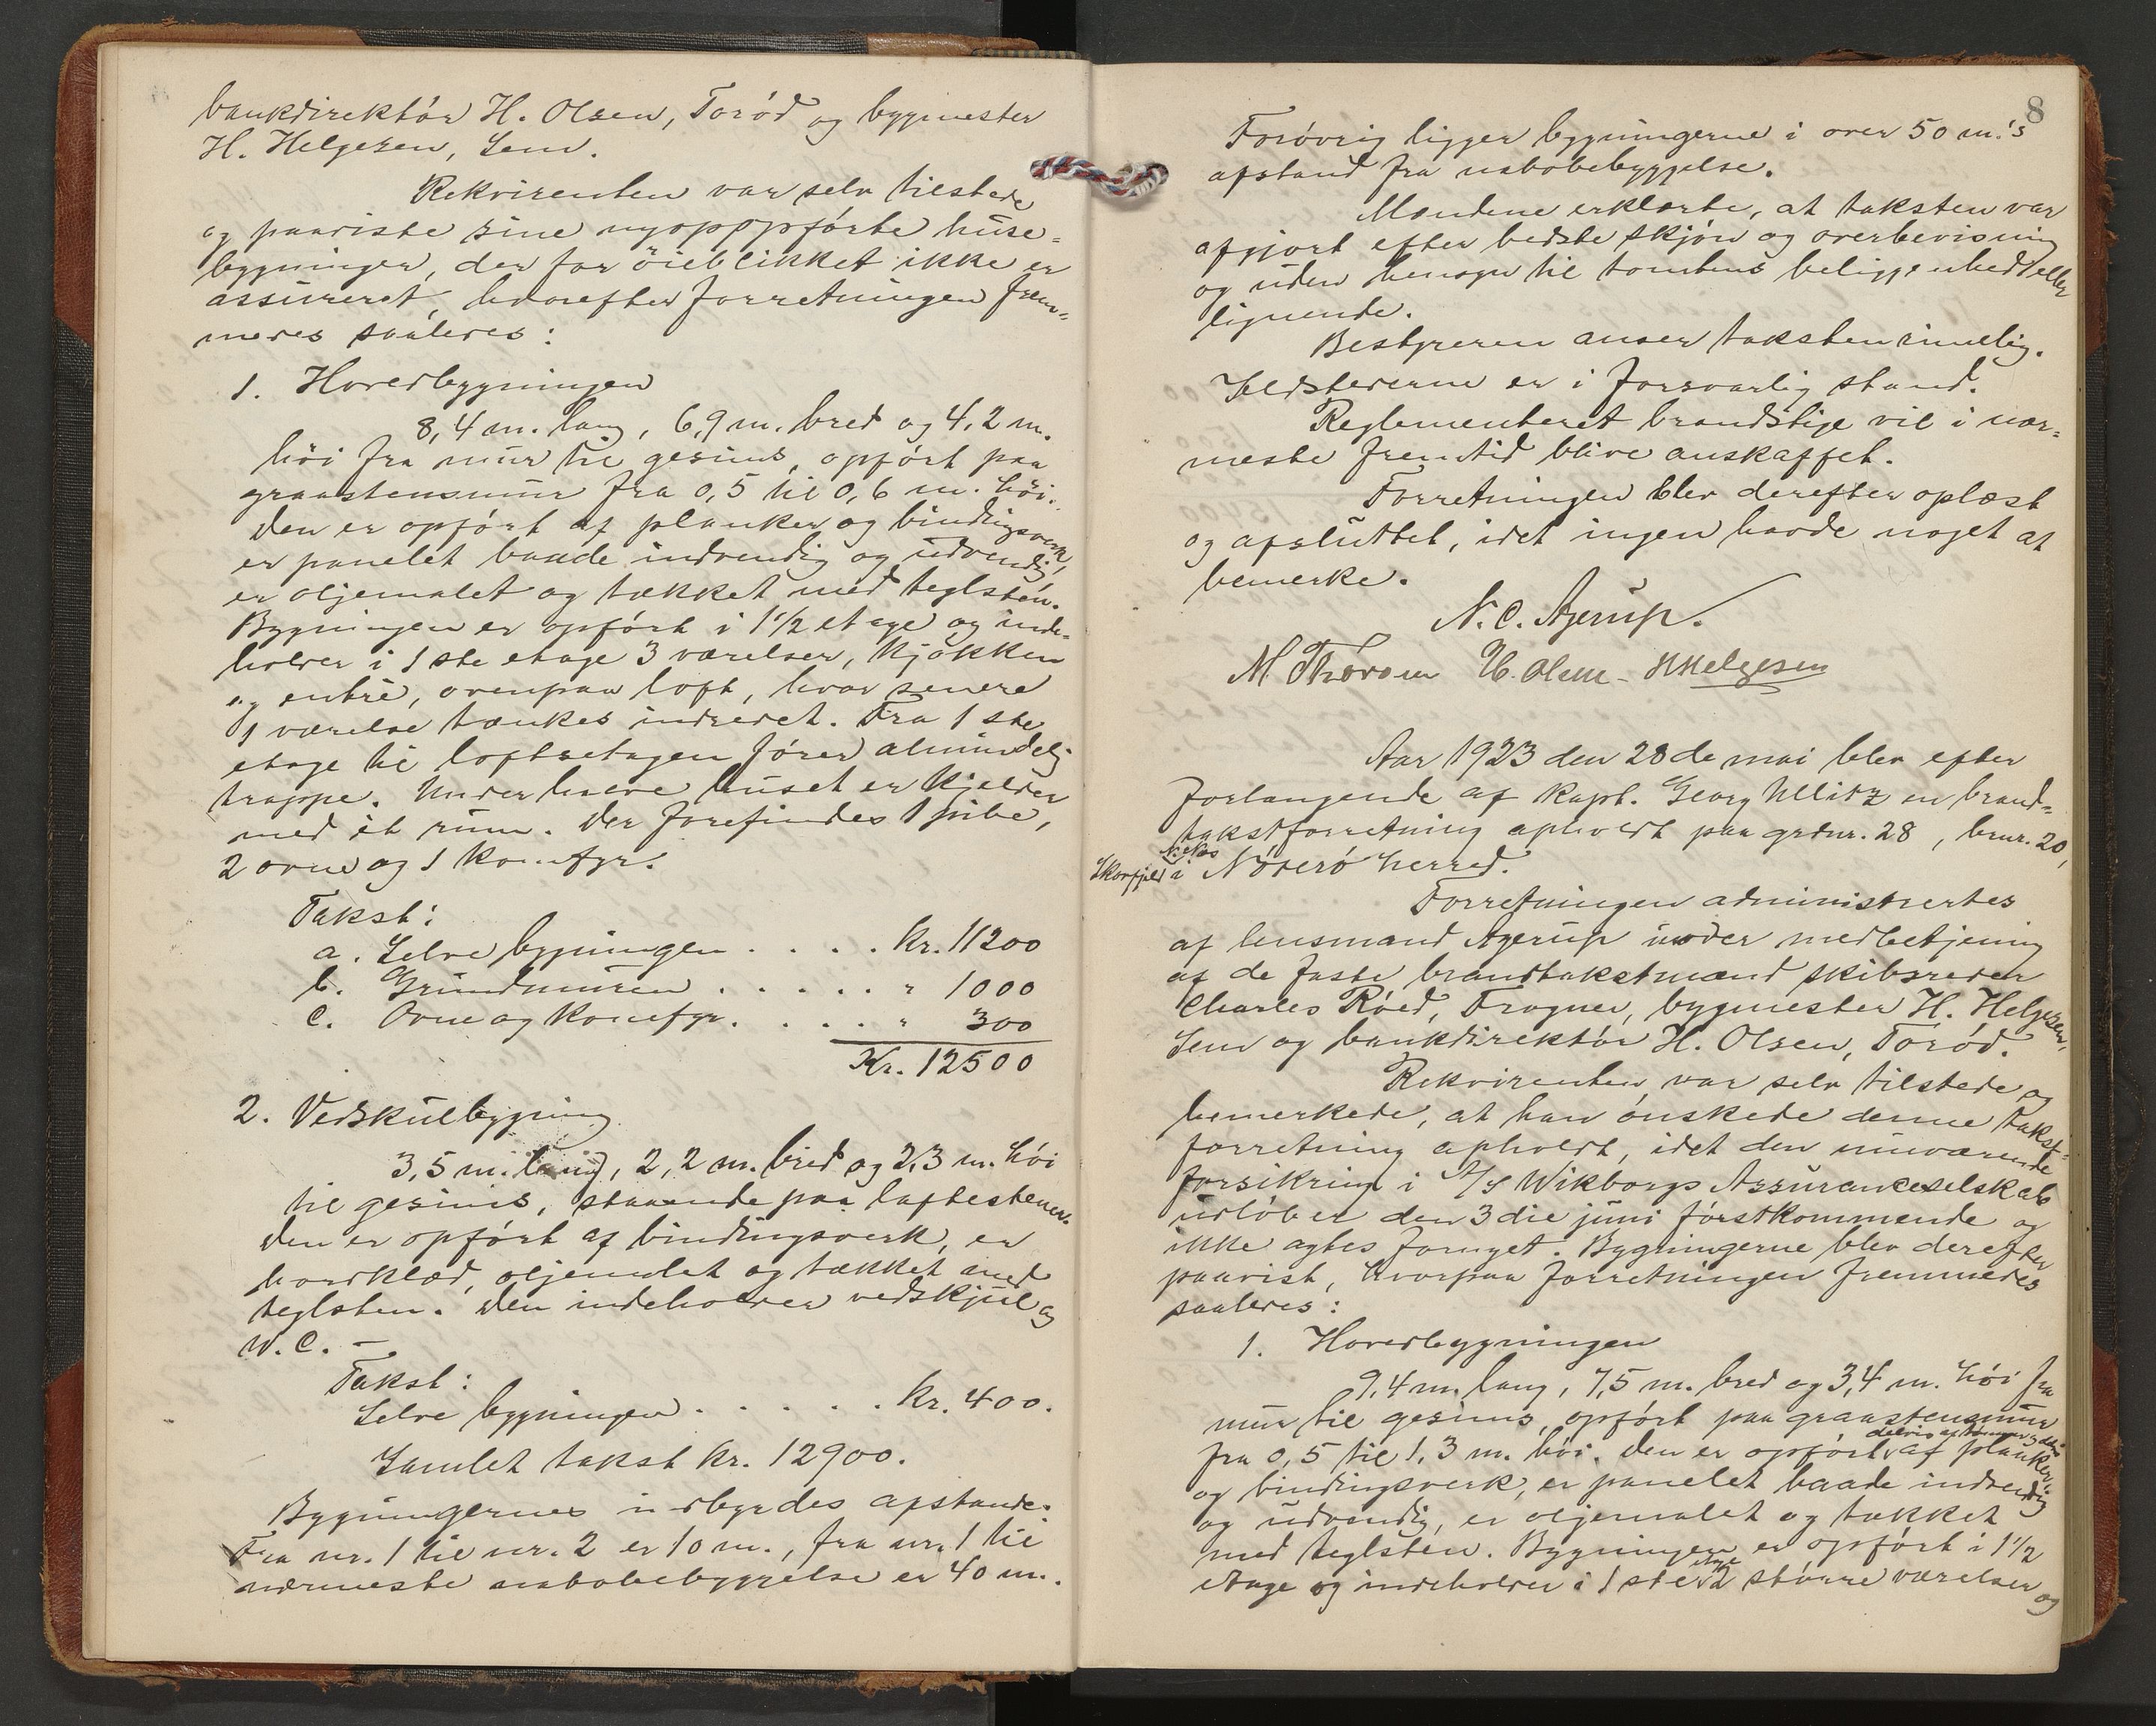 bankdirektör H. Olsen, Toröd og bygmester
H. Helgesen, Sem.
Rekvirenten var selv tilstede
og paaviste sine nyoppförte huse=
bygninger, der for öieblikket ikke er
assureret, hvorefter forretningen frem=
meres saaledes:
1. Hovedbygningen
8,4 m. lang, 6,9 m. bred og 4,2 m.
höi fra mur til gesims, opfört paa
graastensmur fra 0,5 til 0,6 m. höi.
Den er opfört af planker og bindingsverk,
er panelet baade indvendig og udvendig,
er oljemalet og tækket med teglsten.
Bygningen er opfört i 1 1/2 etage og inde=
holder i 1ste etage 3 værelser, kjökken
og entré, ovenpaa loft, hvor senere
1 værelse tænkes indredet. Fra 1ste
etage til loftsetagen förer almindelig
trappe. Under halve huset er kjelder
med ét rum. Der forefindes 1 pibe,
2 ovne og 1 komfyr.
Takst:
a. Selve bygningen . . . . kr. 11200
b. Grundmuren . . . . . " 1000
c. Ovne og komfyr. . . . . " 300
Kr. 12500
2. Vedskulbygning
3,5 m. lang, 2,2 m. bred og 2,3 m. höi
til gesims, staaende paa laftestener.
Den er opfört af bindingsverk, er
bordklæd, oljemalet og tækket med
teglsten. Den indeholder vedskjul og
W.C. –
Takst:
Selve bygningen . . . . . kr. 400.
Samlet takst kr. 12900.
Bygningernes indbyrdes afstande:
Fra nr. 1 til nr. 2 er 10 m., fra nr. 1 til
nærmeste nabobebyggelse er 40 m.
8
Foróvrig ligger bygningerne i over 50 m.'s
afstand fra nabobebyggelse.
Mændene erklærte, at taksten var
afgjort efter bedste skjön og overbevisning
og uden hensyn til tomtens beliggenhed eller
lignende.
Bestyreren anser taksten rimelig.
Ildstederne er i forsvarlig stand.
Reglementeret brandstige vil i nær=
meste fremtid blive anskaffet.
Forretningen blev derefter oplæst
og afsluttet, idet ingen havde noget at
bemerke.
N. C. Agerup.
M. Thoresen H. Olsen – H Helgesen
Aar 1923 den 28de mai blev efter
forlangende af kapt. Georg Ullitz en brand=
takstforretning apholdt paa grdnr. 28, brnr. 20,
Skarfjeld i Nöterö herred.
Forretningen administrertes
af lensmand Agerup under medbetjening
af de faste brandtakstmænd skibsreder
Charles Röed, Frogner, bygmester H. Helgesen,
Sem og bankdirektör H. Olsen, Toröd.
Rekvirenten var selv tilstede og
bemerkede, at han önskede denne takst=
forretning apholdt, idet den nuværende
forsikring i A/S Wikborgs Assuranceselskab
udlöber den 3die juni förstkommende og
ikke agtes fornyet. Bygningerne blev derefter
paavist, hvorpaa forretningen fremmedes
saaledes:
1. Hovedbygningen
9,4 m. lang, 7,5 m. bred og 3,4 m. höi fra
mur til gesims, opfört paa graastensmur
fra 0,5 til 1,3 m. höi. Den er opfört delvis af tömmer og dels af planker
og bindingsverk, er panelet baade indvendig
og udvendig, er oljemalet og tækket
med teglsten. Bygningen er opfört i 1 1/2
etage og indeholder i 1ste etage 2 större værelser og